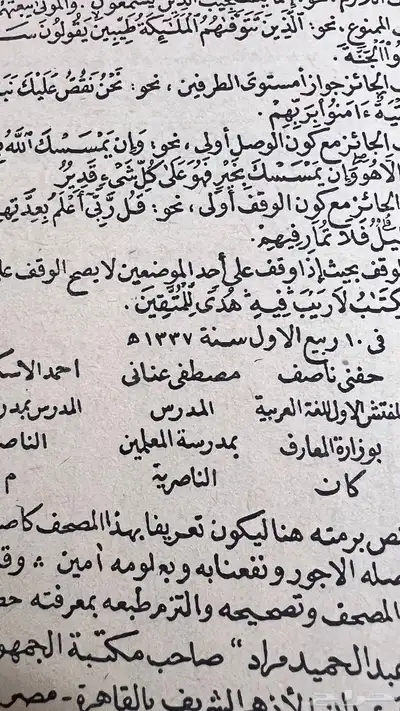 الممنوع، نحو: ٱلَّذِينَ تَتَوَفَّىٰهُمُ ٱلْمَلَٰٓئِكَةُ طَيِّبِينَ يَقُولُونَ
ٱلْجَنَّةَ.
الجائز جوازا مستوى الطرفين، نحو: نَحْنُ نَقُصُّ عَلَيْكَ
ءَامَنُوا۟ بِرَبِّهِمْ.
الجائز مع كون الوصل أولى، نحو: وَإِن يَمْسَسْكَ ٱللَّهُ
إِلَّا هُوَ وَإِن يَمْسَسْكَ بِخَيْرٍ فَهُوَ عَلَىٰ كُلِّ شَىْءٍ قَدِيرٌ
الجائز مع كون الوقف أولى، نحو: قُل رَّبِّىٓ أَعْلَمُ بِعِدَّتِهِم
قَلِيلٌ فَلَا تُمَارِ فِيهِمْ.
الوقف بحيث إذا وقف على أحد الموضعين لا يصح الوقف على
ٱلْكِتَٰبُ لَا رَيْبَ فِيهِ هُدًى لِّلْمُتَّقِينَ.
فى ١٠ ربيع الاول سنة ١٣٣٧ ه
حفنى ناصف مصطفى عنانى احمد
المفتش الاول للغة العربية المدرس المدرس
بوزارة المعارف بمدرسة المعلمين
كان الناصرية م
برمته هنا ليكون تعريفا بهذا المصحف
الاجور ونفعنا به وبعلومه امين
المصحف وتصحيحه والتزم طبعه بمعرفته
عبد الحميد مراد " صاحب مكتبة
الأزهر الشريف بالقاهرة - مصر